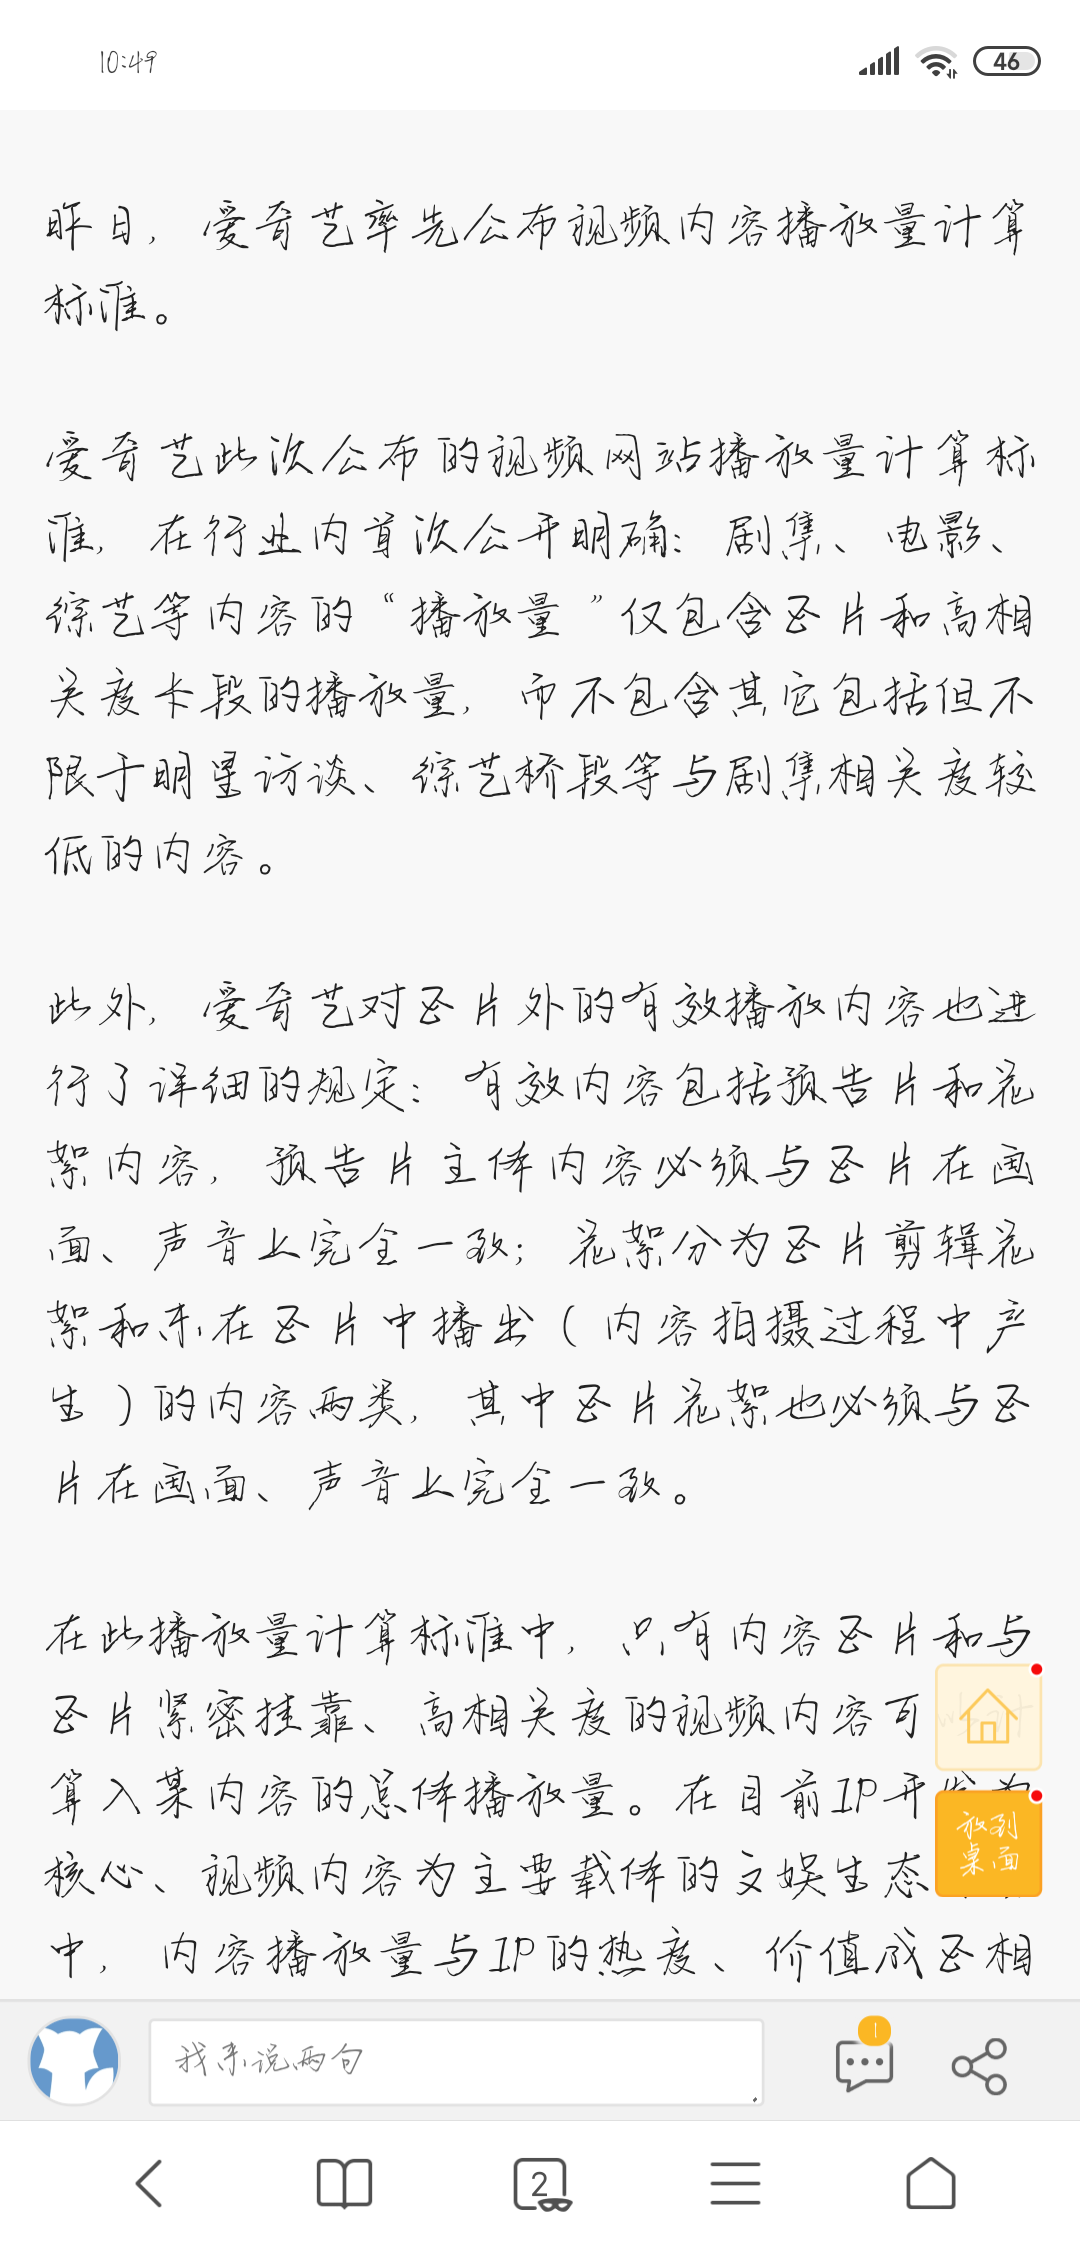 10:49
46
昨日，爱奇艺率先公布视频内容播放量计算
标准。
爱奇艺此次公布的视频网站播放量计算标
准，在行业内首次公开明确：剧集、电影、
综艺等内容的“播放量”仅包含正片和高相
关度卡段的播放量，而不包含其它包括但不
限于明星访谈、综艺桥段等与剧集相关度较
低的内容。
此外，爱奇艺对正片外的有效播放内容也进
行了详细的规定：有效内容包括预告片和花
絮内容，预告片主体内容必须与正片在画
面、声音上完全一致；花絮分为正片剪辑花
絮和未在正片中播出（内容拍摄过程中产
生）的内容两类，其中正片花絮也必须与正
片在画面、声音上完全一致。
在此播放量计算标准中，只有内容正片和与
正片紧密挂靠、高相关度的视频内容可
算入某内容的总体播放量。在目前IP开发为
核心、视频内容为主要载体的文娱生态
中，内容播放量与IP的热度、价值成正相
放到
桌面
我来说两句
1
2